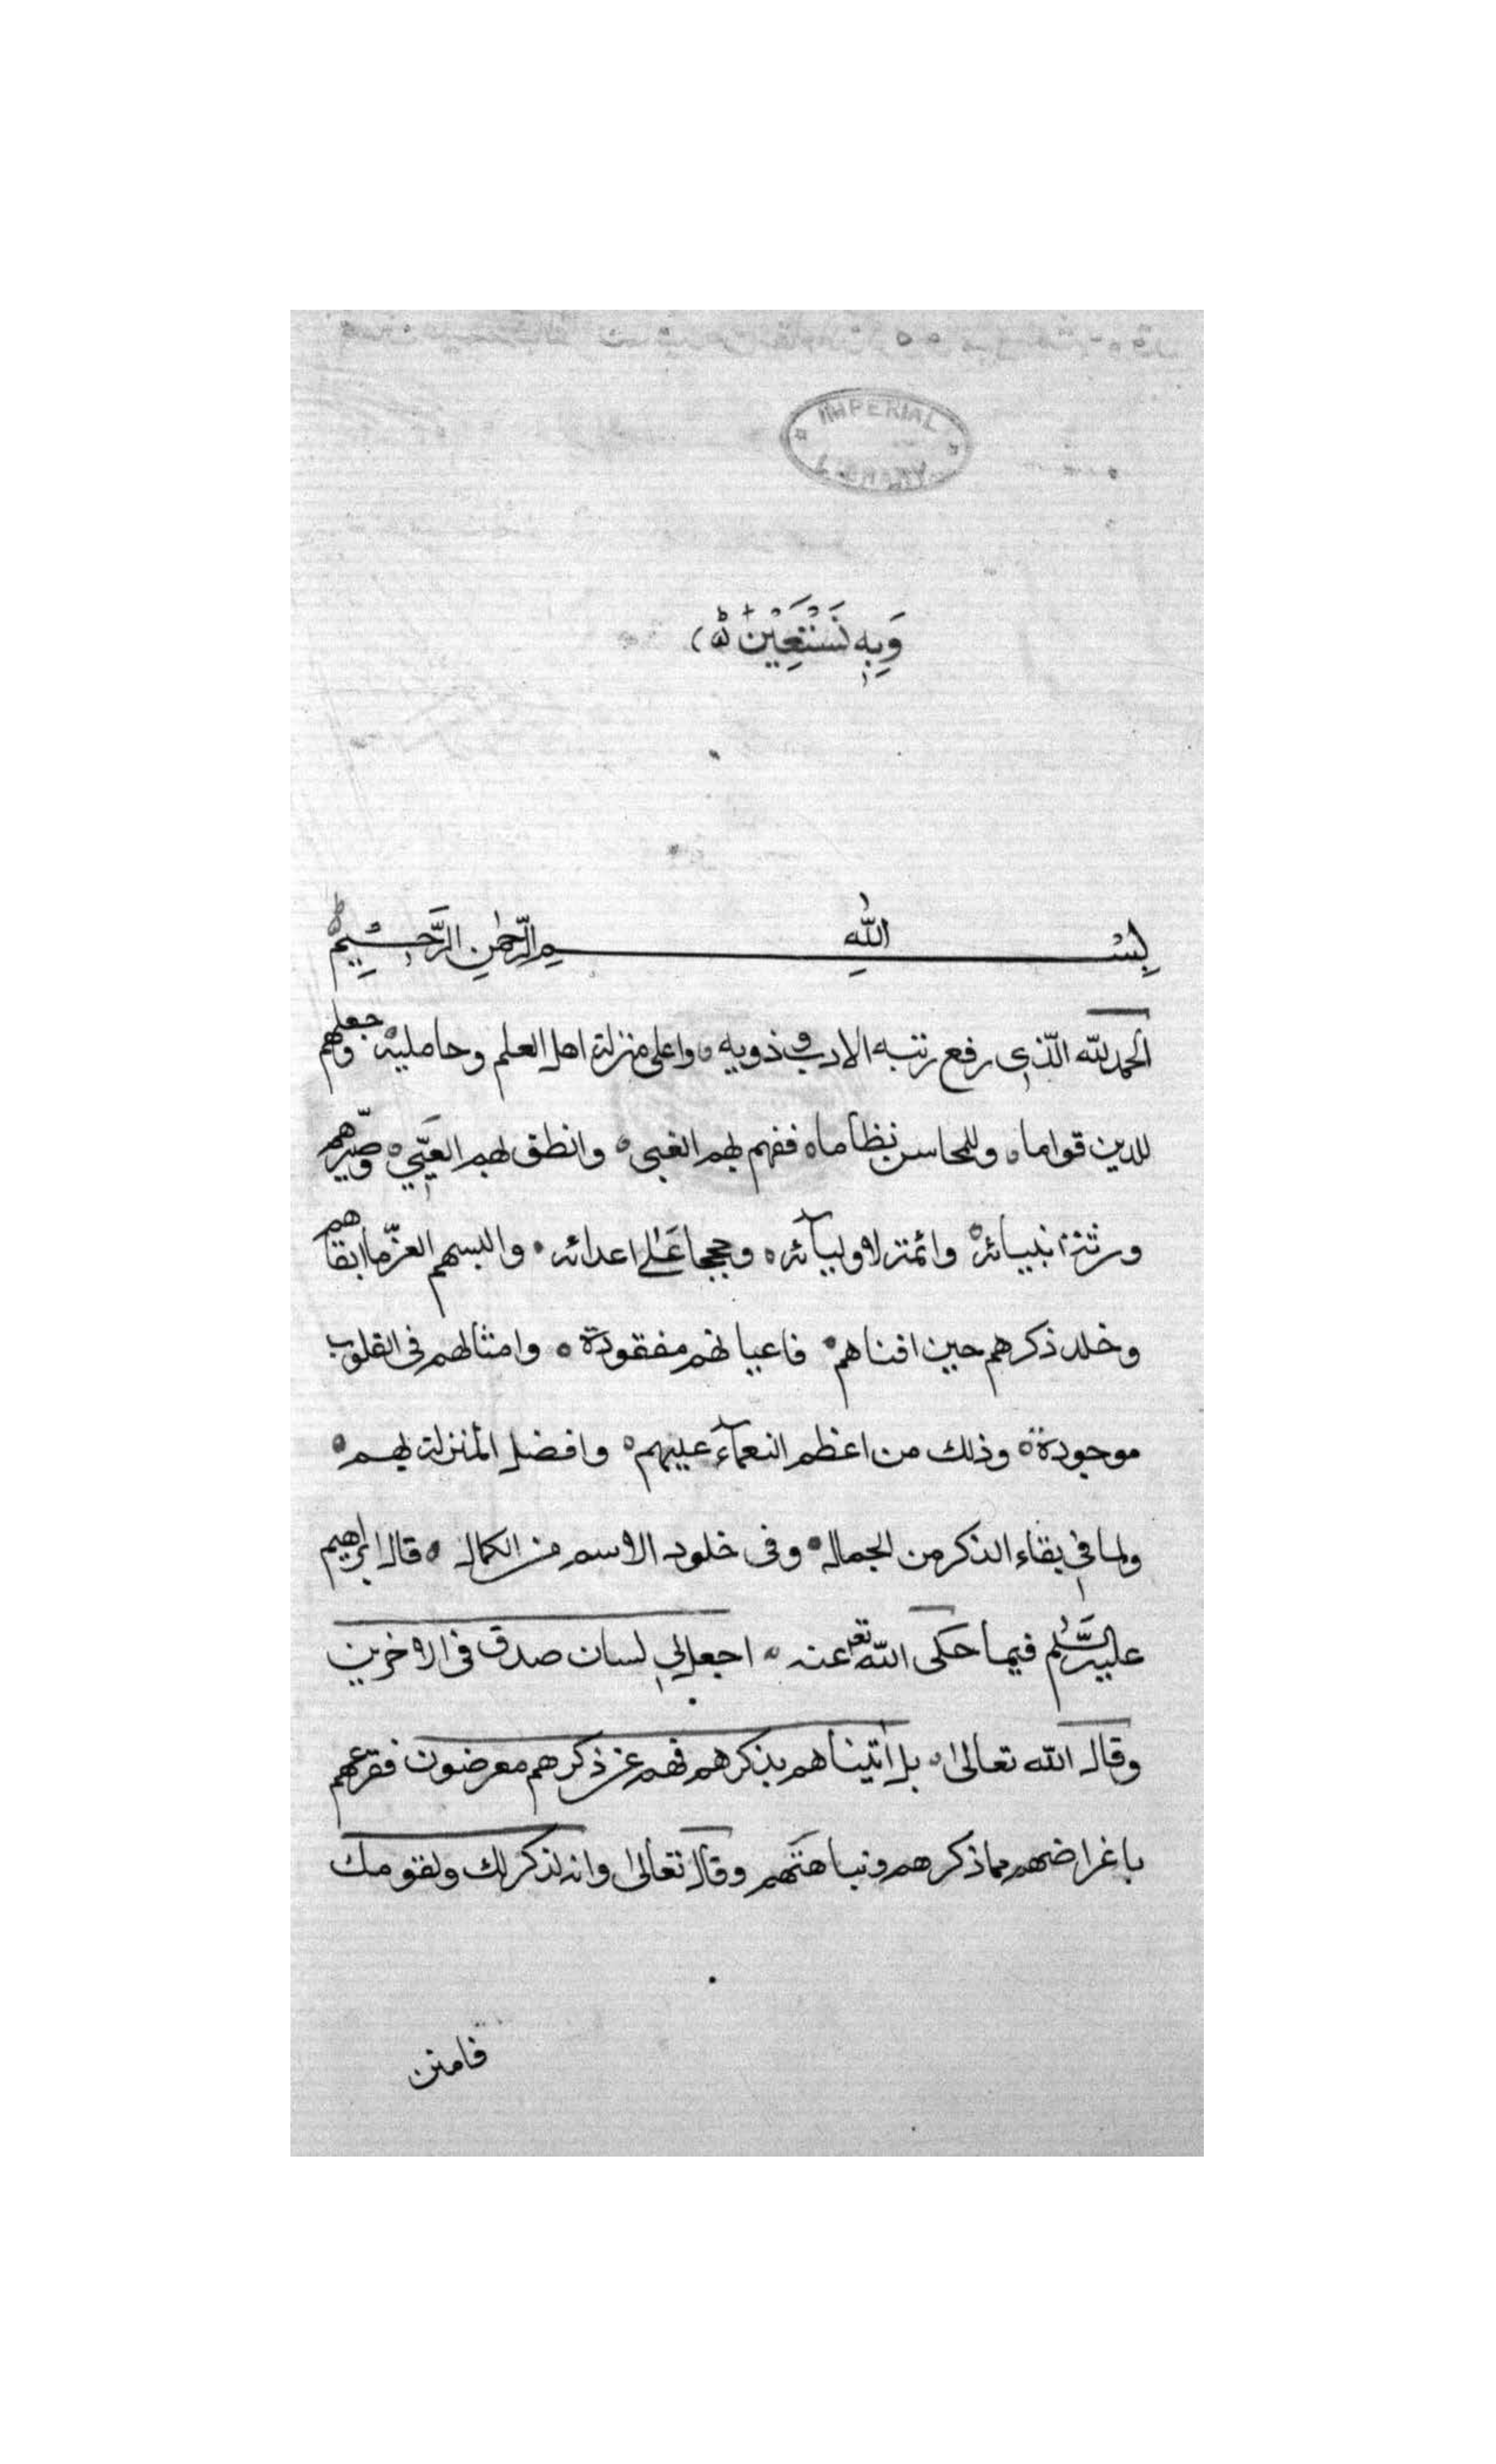 IMPERIAL
LIBRARY
وَبِهٖ نَسْتَعِيْن
بِسْـــمِ اللّٰهِ الرَّحْمٰنِ الرَّحِـــيْمِ
الحمد لله الّذي رفع رتبه الادب و ذويه ٥ واعلى منزلة اهل العلم وحامليه ٥ وجعلهم
للدين قواما ٥ وللمحاسن نظاما ٥ ففهم بهم الغبى ٥ وانطق بهم العَيّي ٥ وصيّرهم
ورثة انبيائه ٥ وائمة لاوليآئه ٥ وحججا عَلٰى اعدائه ٥ والبسهم العزّ ما ابقاهم
وخلد ذكرهم حين افناهم ٥ فاعيانهم مفقودة ٥ وامثالهم فى القلوب
موجودة ٥ وذلك من اعظم النعمآء عليهم ٥ وافضل المنزلة بهم ٥
ولما في بقاء الذكر من الجمال ٥ وفى خلود الاسم من الكمال ٥ قال ابراهيم
عليه السّلٰم فيما حكى اللّه تعـ عنه ٥ اجعل لي لسان صدق فى الاخرين
وقال الله تعالىٰ ٥ بل اتيناهم بذكرهم فهم عن ذكرهم معرضون فقرعهم
باغراضهم مما ذكرهم ونباهتهم وقال تعالىٰ وانه لذكر لك ولقومك
فامتن